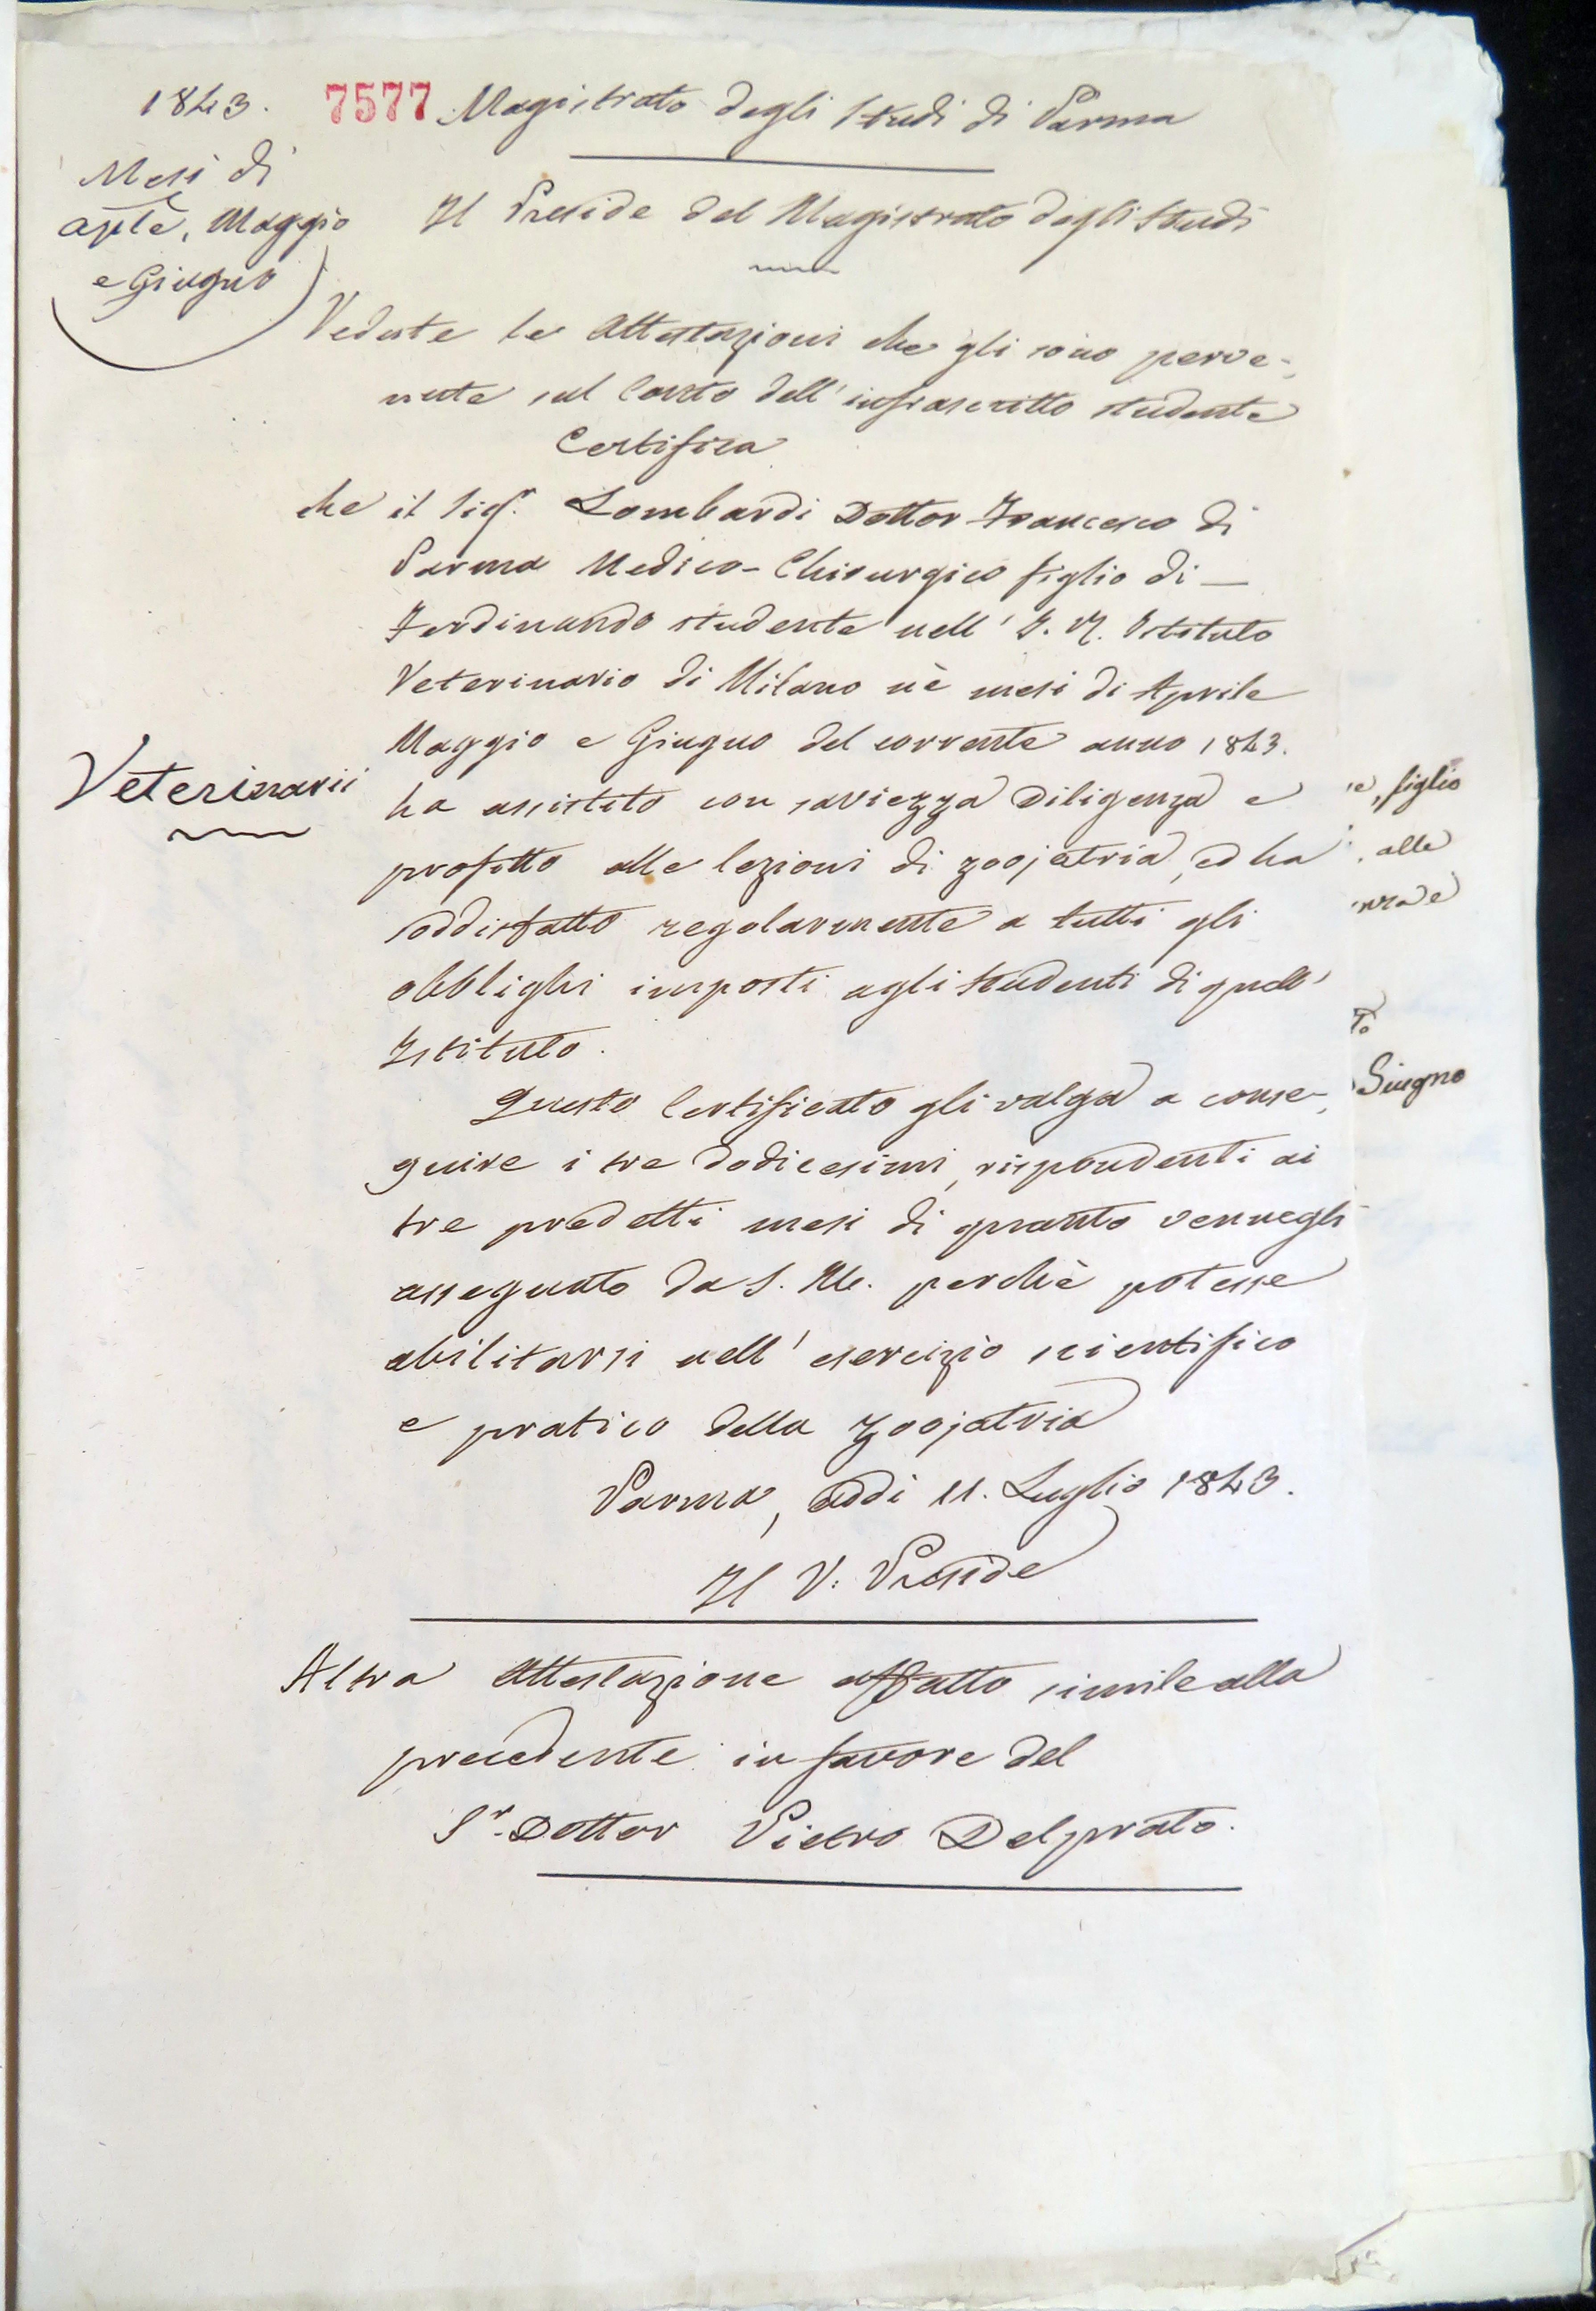 1843.
7577 Magistrato degli Studi di Parma
Mesi di
aple, Maggio
e Giugno
Il Preside del Magistrato degli Studi
Vedute le attestazioni che gli sono perve-
nute sul Conto dell' infrascritto studente
Certifica
che il Sigr. Lombardi Dottor Francesco di
Parma Medico-Chirurgico figlio di —
Ferdinando studente nell' I. R. Istituto
Veterinario di Milano nè mesi di Aprile
Maggio e Giugno del corrente anno 1843.
Veterinarii
ha assistito con saviezza Diligenza e
profitto alle lezioni di zoojatria, ed ha
soddisfatto regolarmente a tutti gli
obblighi imposti agli studenti di quell'
Istituto.
Questo Certificato gli valga a conse-
guire i tre dodicesimi, rispondenti ai
tre predetti mesi di quanto vennegli
assegnato da S. M. perchè potesse
abilitarsi nell' esercizio scientifico
e pratico della zoojatria
Parma, addi 11. Luglio 1843.
Il V. Preside
Altra attestazione affatto simile alla
precedente in favore del
Sr. Dottor Pietro Delprato.
figlio
alle
Giugno